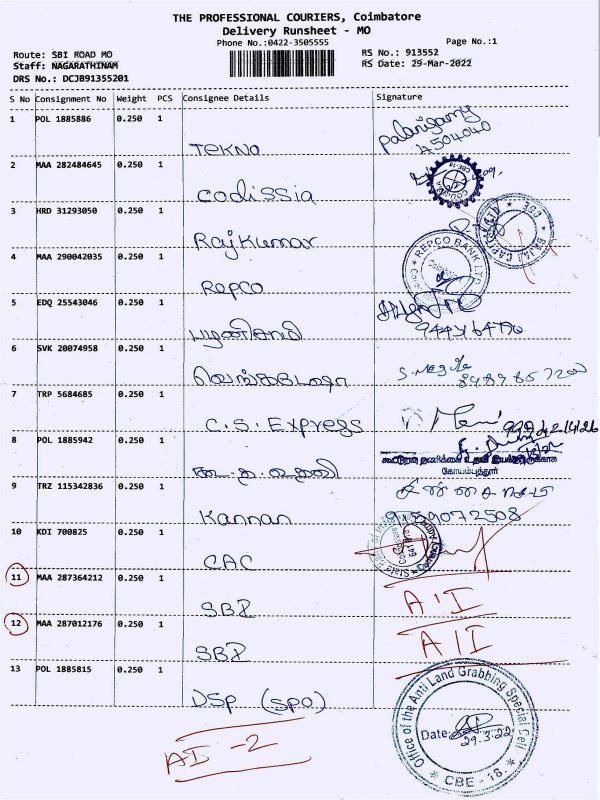 THE PROFESSIONAL COURIERS, Coimbatore
Delivery Runsheet - MO
Phone No.:0422-3505555
Page No.:1
Route: SBI ROAD MO
RS No.: 913552
Staff: NAGARATHINAM
RS Date: 29-Mar-2022
DRS No.: DCJB91355201
S No Consignment No Weight PCS Consignee Details Signature
1 POL 1885886 0.250 1
TEKNO
2 MAA 282484645 0.250 1
codissia
3 HRD 31293050 0.250 1
Rajkumar
4 MAA 290042035 0.250 1
Repco
REPCO BANK LT
5 EDQ 25543046 0.250 1
பழனிசாமி
6 SVK 20074958 0.250 1
வெங்கடேஷ
7 TRP 5684685 0.250 1
C.S. Express
8 POL 1885942 0.250 1
கோயம்புத்தூர்
9 TRZ 115342836 0.250 1
Kannan
9159072508
10 KDI 700825 0.250 1
CAC
11 MAA 287364212 0.250 1
SBI
A I
12 MAA 287012176 0.250 1
SBI
A I
13 POL 1885815 0.250 1
DSP (SPO)
Office of the Anti Land Grabbing Special Cell
Date:
29.3.22
CBE - 18.
AI - 2